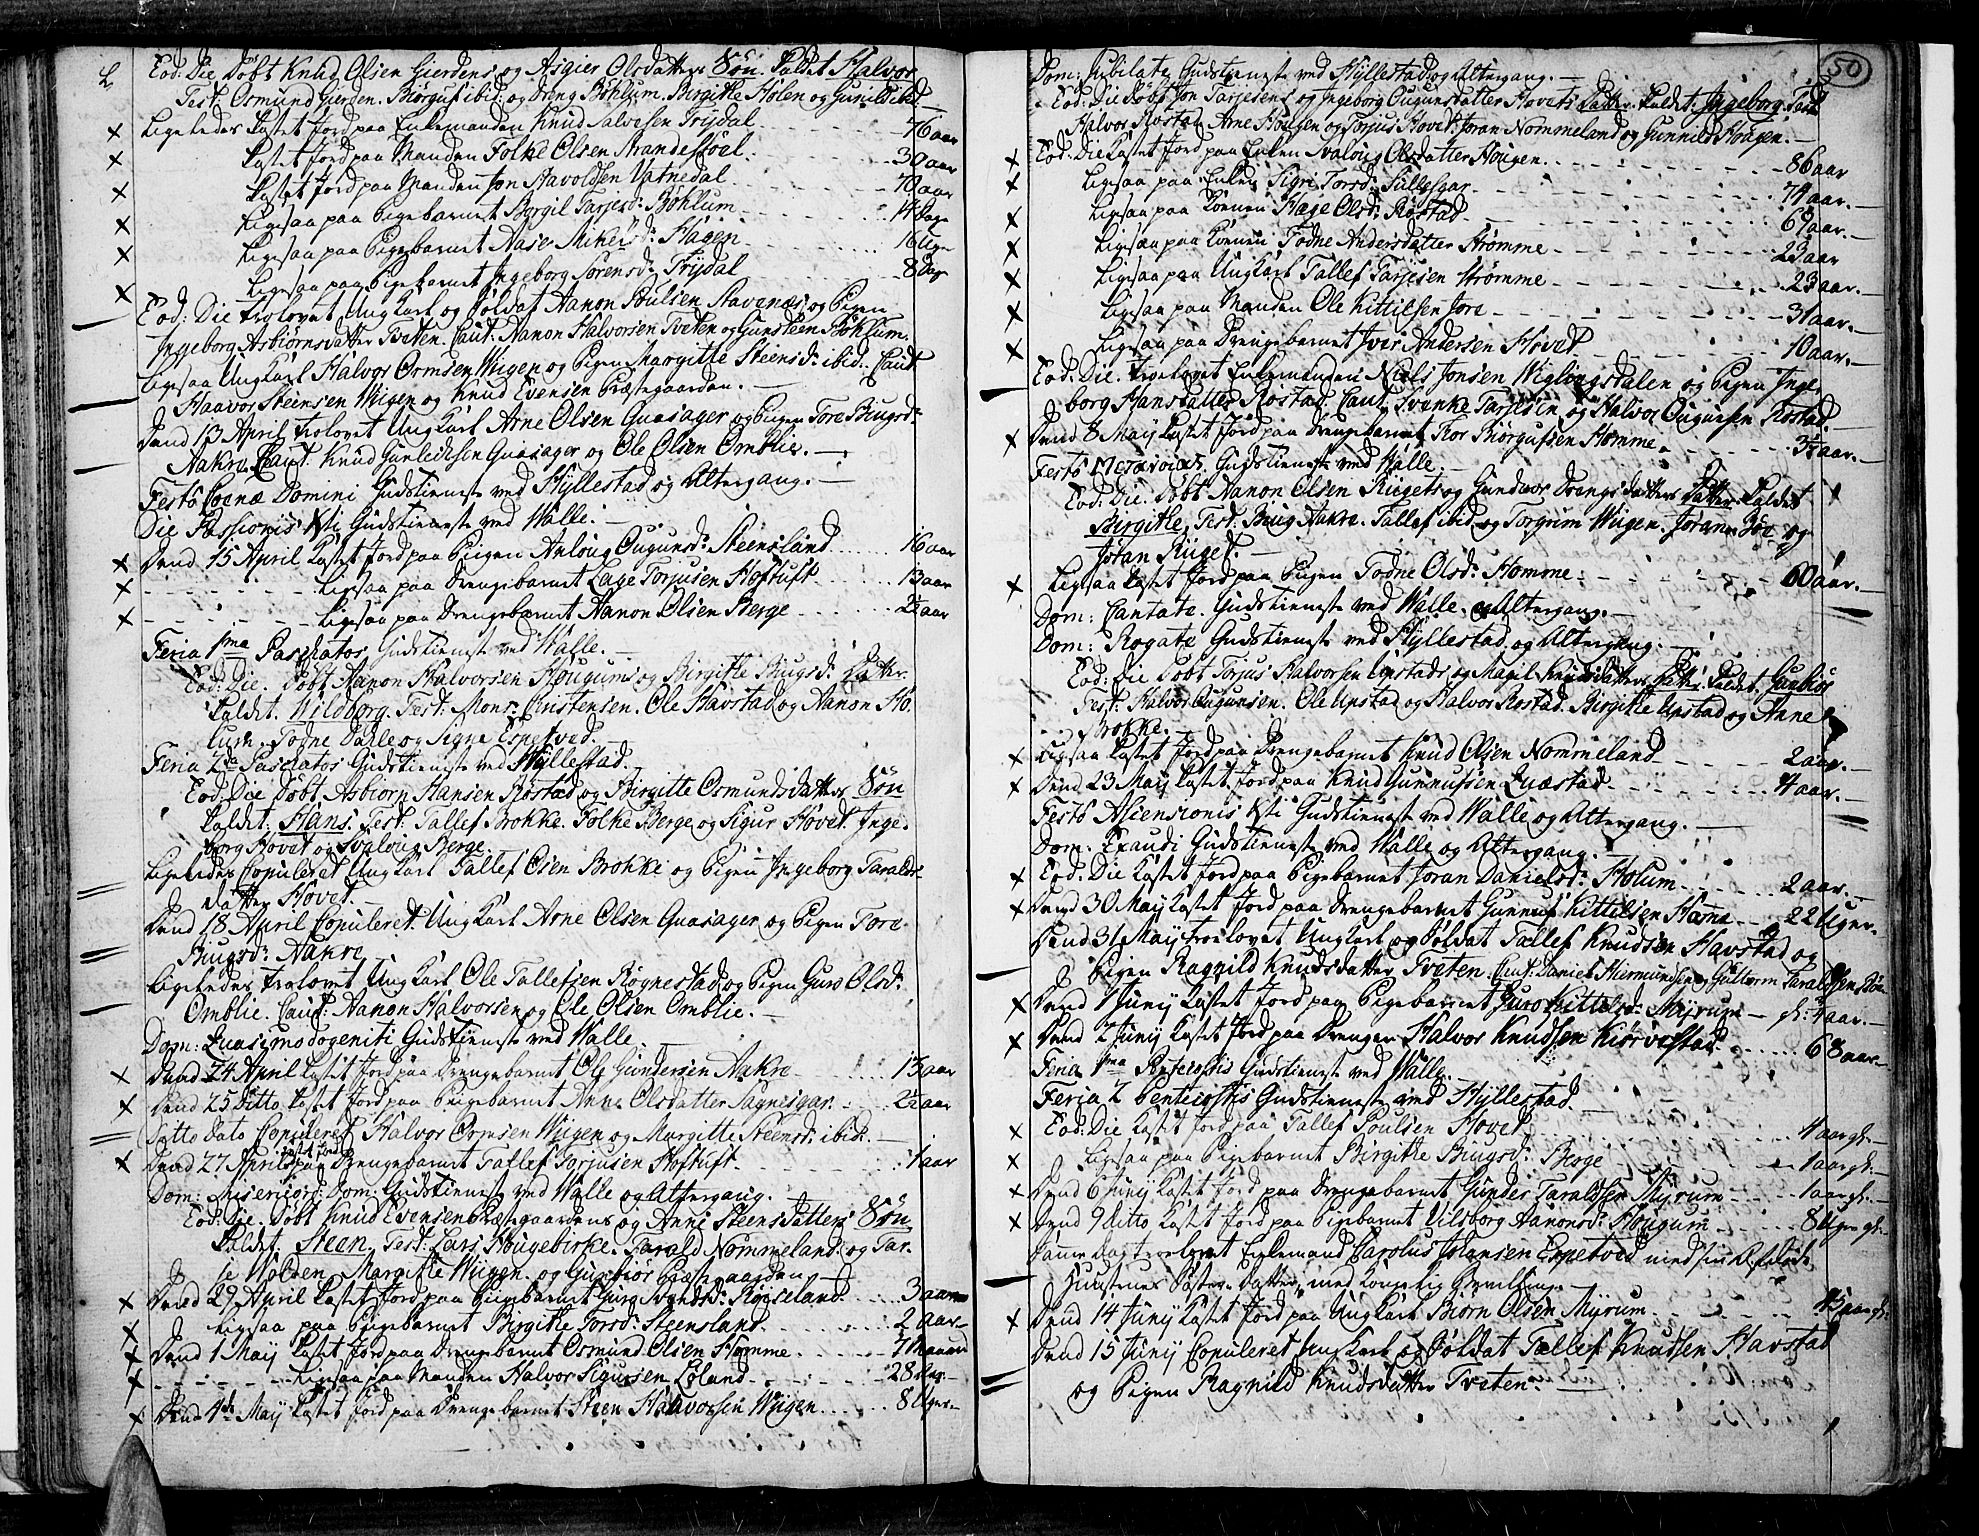 Eod: Die Døbt Knud Olsen Gierdens og Asgier Olsdatters Søn. Kaldet Halvor
Test: Osmund Gierden. Biørguf ibid: og Dreng Bøhlum. Birgitte Holen og Gunild ibid.
Ligeledes kastet Jord paa Enkemanden Knud Salvesen Trydal 76 aar
kastet Jord paa Manden Folke Olsen Strandestøel 30 aar
kastet Jord paa Manden Jon Havoldsen Vatnedal 70 aar
Ligesaa paa Pigebarnet Borgil Tarjesd: Bøhlum 14 Dage
Ligesaa paa Pigebarnet Aase Mikelsd: Hagen 16 Uger
Ligesaa paa Pigebarnet Ingeborg Sørensd: Trydal 8 Dage
Eod: Die trolovet Ungkarl og Soldat Aanon Poulsen Stavenæs og Pigen
Ingeborg Asbiørnsdatter Tveten. Caut: Aanon Halvorsen Tveten og Gunsteen Bøhlum.
Ligesaa Ungkarl Halvor Ormsen Wiigen og Pigen Margitte Steensd: ibid: Caut:
Haavor Steensen Wiigen og Knud Evensen Præstegaarden.
Dend 13 April trolovet Ungkarl Arne Olsen Guasager og Pigen Tore Biugsd:
Aakre. Caut: Knud Gunleiksen Guasager og Ole Olsen Omblie.
Festo Coenæ Domini Gudstieneste ved Hyllestad og Altergang.
Die Passionis Xsti Gudstieneste ved Walle.
Dend 15 April kastet Jord paa Pigen Anloug Ougunsd: Steensland 16 aar
Ligesaa paa Drengebarnet Lage Torjusen Hoftuft 13 aar
Ligesaa paa Drengebarnet Aanon Olsen Berge 2½ aar
Feria 1ma Paschatos Gudstieneste ved Walle.
Eod: Die. Døbt Aanon Halvorsen Hougums og Birgitte Biugsd: Datter.
Kaldet. Wildborg. Test: Mons: Christensen. Ole Havstad og Aanon Ho
lum. Todne Dahle og Signe Espetved.
Feria 2da Paschatos Gudstieneste ved Hyllestad.
Eod: Die Døbt Asbiørn Hansen Røstad og Birgitte Osmundsdatters Søn
Kaldet: Hans. Test: Tallef Brokke. Folke Berge og Sigur Hovet. Inge-
borg Hovet og Svaloug Berge.
Ligeledes Copuleret Ungkarl Tallef Olsen Brokke og Pigen Ingeborg Taralds-
datter Hovet.
Dend 18 April Copuleret. Ungkarl Arne Olsen Guasager og Pigen Tore
Biugsd: Aakre
Ligeledes trolovet Ungkarl Ole Tallefsen Rognestad og Pigen Guro Olsd:
Omblie. Caut: Aanon Halvorsen og Ole Olsen Omblie.
Dom: Quasimodogeniti Gudstieneste ved Walle.
Dend 24 April kastet Jord paa Drengebarnet Ole Gundersen Aakre 13 aar
Dend 25 Ditto kastet Jord paa Pigebarnet Anne Olsdatter Sagnesgar 2½ aar
Ditto Dato Copuleret Halvor Ormsen Wiigen og Margitte Steensd: ibid:
Dend 27 April kastet Jord paa Drengebarnet Tallef Torjusen Hoftuft 1 aar
Dom: Misericord: Dom: Gudstieneste ved Walle og Altergang.
Eod: Die. Døbt Knud Evensen Præstegaardens og Anne Steens Datters Søn
Kaldet. Steen. Test: Lars Hougebirke. Tarald Nommeland og Tar-
je Wolden. Margitte Wiigen. og Gunbior Præstegaarden
Dend 29 April kastet Jord paa Pigebarnet Guro Svendsd: Røiseland 3 aar
Ligesaa paa Pigebarnet Birgitte Torsd: Steensland 2 aar
Dend 1 Maij kastet Jord paa Drengebarnet Osmund Olsen Homme 7 Maaned
Ligesaa paa Manden Halvor Sigursen Løland 28 aar
Dend 4de Maij kastet Jord paa Drengebarnet Steen Haavorsen Wiigen 8 Uger
50
Dom: Jubilate Gudstieneste ved Hyllestad og Altergang.
Eod: Die Døbt Jon Tarjesens og Ingeborg Ougunsdatter Hovets Datter. Kaldet. Ingeborg. Test:
Halvor Rostad. Arne Hougen og Torjus Hovet. Joran Nommeland og Gunnild Hougen.
Eod: Die kastet Jord paa Enken Svaloug Olsdatter Hougen 86 aar
Ligesaa paa Enken Sigri Torsd: Sullesgar 74 aar.
Ligesaa paa Konen Hæge Olsd: Røstad 67 aar.
Ligesaa paa Konen Todne Andersdatter Strømme 23 aar
Ligesaa paa Ungkarl Tallef Tarjesen Strømme 23 aar.
Ligesaa paa Manden Ole Kittilsen Jore 31 aar.
Ligesaa paa Drengebarnet Iver Andersen Hovet 10 aar.
Eod: Die. trolovet Enkemanden Niels Jonsen Wiglingsdalen og Pigen Inge
borg Hansdatter Rostad. Caut: Svenke Tarjesen og Halvor Ougunsen Rostad.
Dend 8 Maij kastet Jord paa Drengebarnet Tor Biørgufsen Homme 3½ aar.
Festo Gudstieneste ved Walle.
Eod: Die. Døbt Aanon Olsen Riigets og Gundvor Drengsdatters Datter Kaldet
Birgitte. Test: Biug Aakre. Tallef ibid og Torgrim Wiigen. Joran Bøe og
Joran Riiget.
Ligesaa kastet Jord paa Pigen Todne Olsd: Homme 60 aar.
Dom: Cantate. Gudstieneste ved Walle. og Altergang.
Dom: Rogate Gudstieneste ved Hyllestad og Altergang.
Eod: Die Døbt Torjus Halvorsen Upstads og Magil Knudsdatters Datter. Kaldet. Gunbior
Test: Halvor Ougunsen. Ole Upstad og Halvor Rostad. Birgitte Upstad og Anne
Brokke.
Ligesaa kastet Jord paa Drengebarnet Knud Olsen Nommeland 2 aar.
Dend 23 Maij kastet Jord paa Knud Gunnufsen Quæstad 4 aar.
Festo Ascensionis Xsti Gudstieneste ved Walle og Altergang.
Dom. Exaudi Gudstieneste ved Walle og Altergang.
Eod: Die kastet Jord paa Pigebarnet Joran Danielsd: Holum 2 aar.
Dend 30 Maij kastet Jord paa Drengebarnet Gunnuf Kittilsen Home 22 Uger.
Dend 31 Maij trolovet Ungkarl og Soldat Tallef Knudsen Havstad og
Pigen Ragnild Knudsdatter Tveten. Caut: Daniel Hiermundsen og Guttorm Taraldsen
Dend 1 Junij kastet Jord paa Pigebarnet Guro Kittilsd: Myrum gl: 4 aar.
Dend 2 Junij kastet Jord paa Drengen Halvor Knudsen Kiørvestad 68 aar
Feria 1ma Pentecostis Gudstieneste ved Walle.
Feria 2 Pentecostis Gudstieneste ved Hyllestad.
Eod: Die kastet Jord paa Tallef Poulsen Hovet 4 aar gl.
Ligesaa paa Pigebarnet Birgitte Biugsd: Berge 1 aar gl.
Dend 6 Junij kastet Jord paa Drengebarnet Gunder Taraldsen Myrum 1 aar gl.
Dend 9 ditto kastet Jord paa Pigebarnet Vilborg Aanonsd: Hougum 8 Uger gl.
Samme Dag trolovet Enkemand Carolus Johansen Espetved med sin Afdøde
Huustrues Søster Datter, med Kongelig Bevilling.
Dend 14 Junij kastet Jord paa Ungkarl Biørn Olsen Myrum 45 aar gl.
Dend 15 Junij Copuleret Ungkarl og Soldat Tallef Knudsen Havstad
og Pigen Ragnild Knudsdatter Tveten.